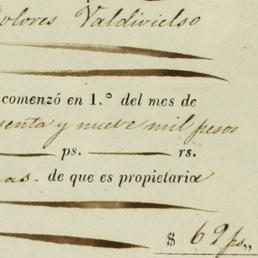 Dolores Valdivielso
comenzó en 1.º del mes de
senta y nueve mil pesos
ps. rs.
as. de que es propietaria
$ 69 ps.,,